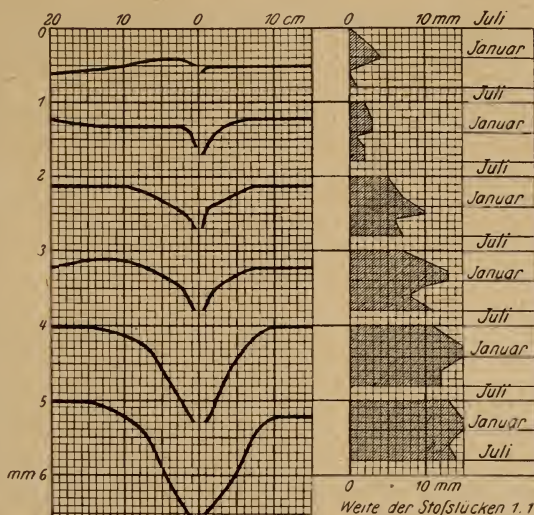 20 10 0 10 cm 0 10 mm Juli
0
Januar
Juli
1
Januar
Juli
2
Januar
Juli
3
Januar
Juli
4
Januar
Juli
5
Januar
Juli
mm 6
0 10 mm
Weite der Stoßlücken 1.1